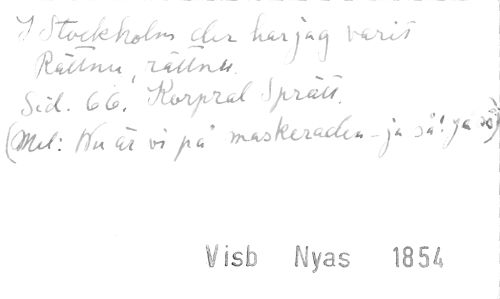 I Stockholm der har jag varit
Rättnu, rättnu.
Sid. 66. Korpral Sprätt.
(Mel: Nu är vi på maskeraden - ja så! ja så)
Visb Nyas 1854